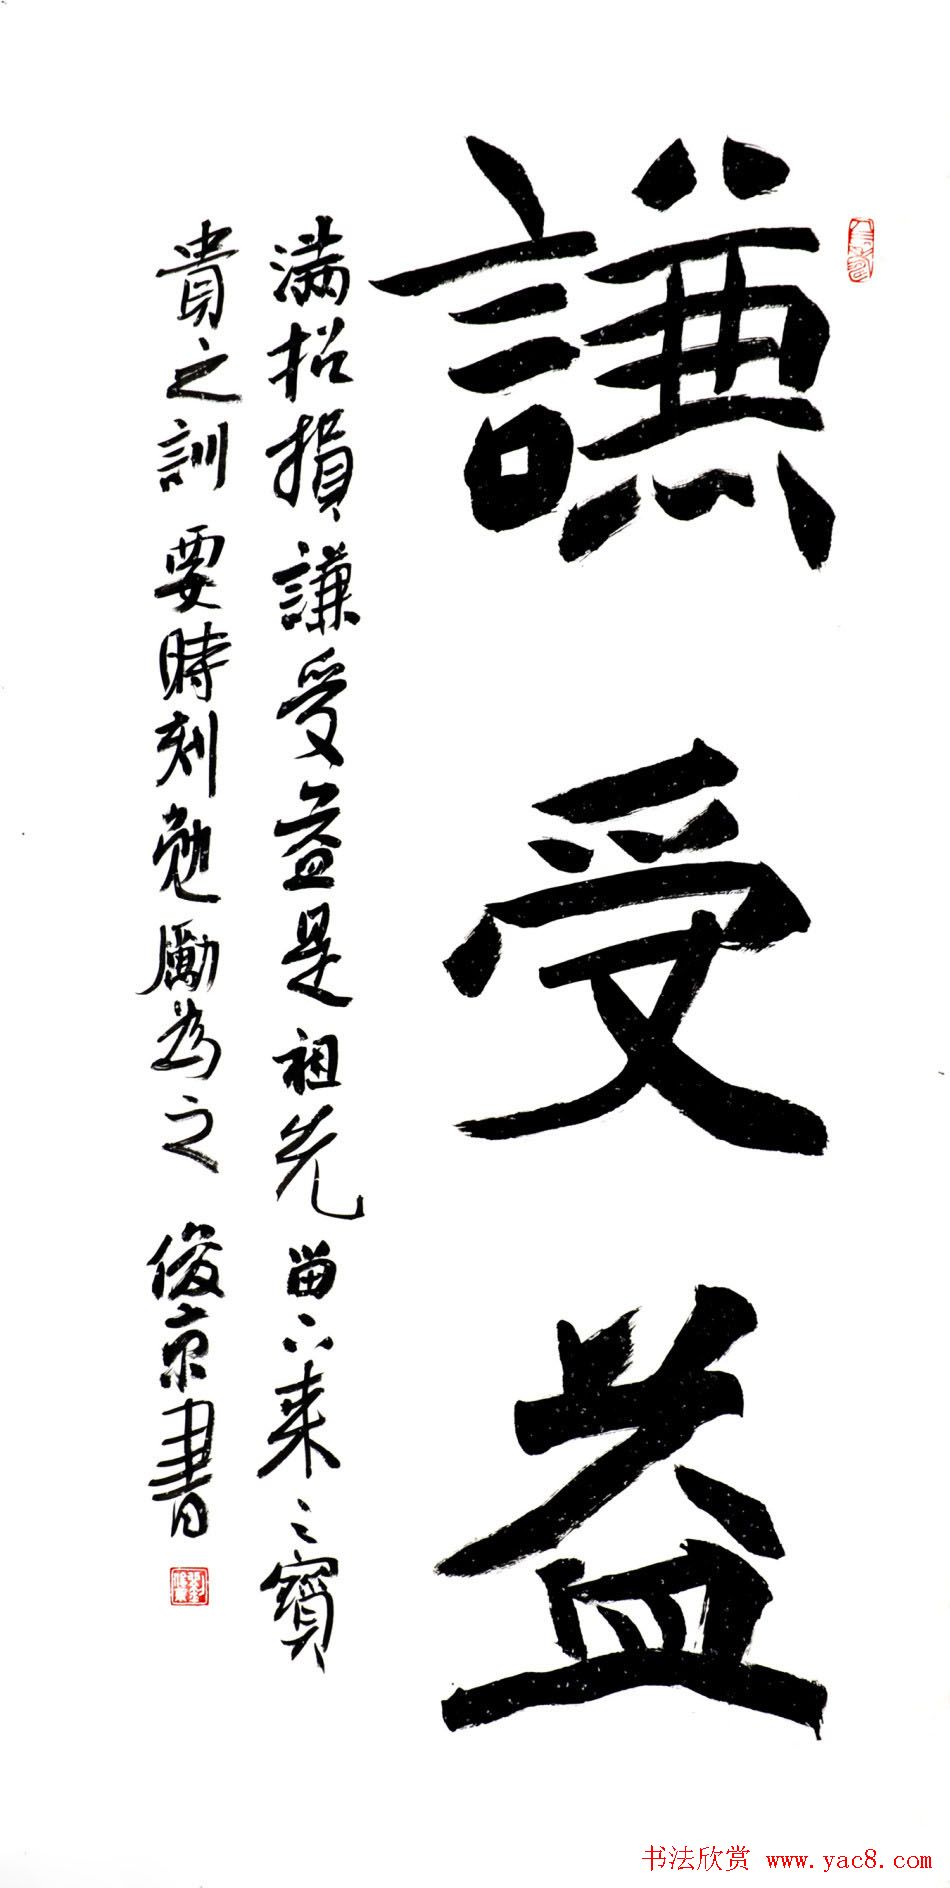 謙受益
满招損謙受益是祖先留下来之寶
貴之訓要時刻勉勵為之俊京書
书法欣赏 www.yac8.com